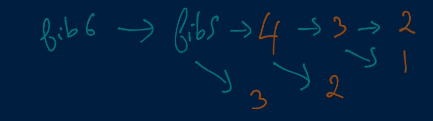 fib6 → fib5 → 4 → 3 → 2
1
3 2